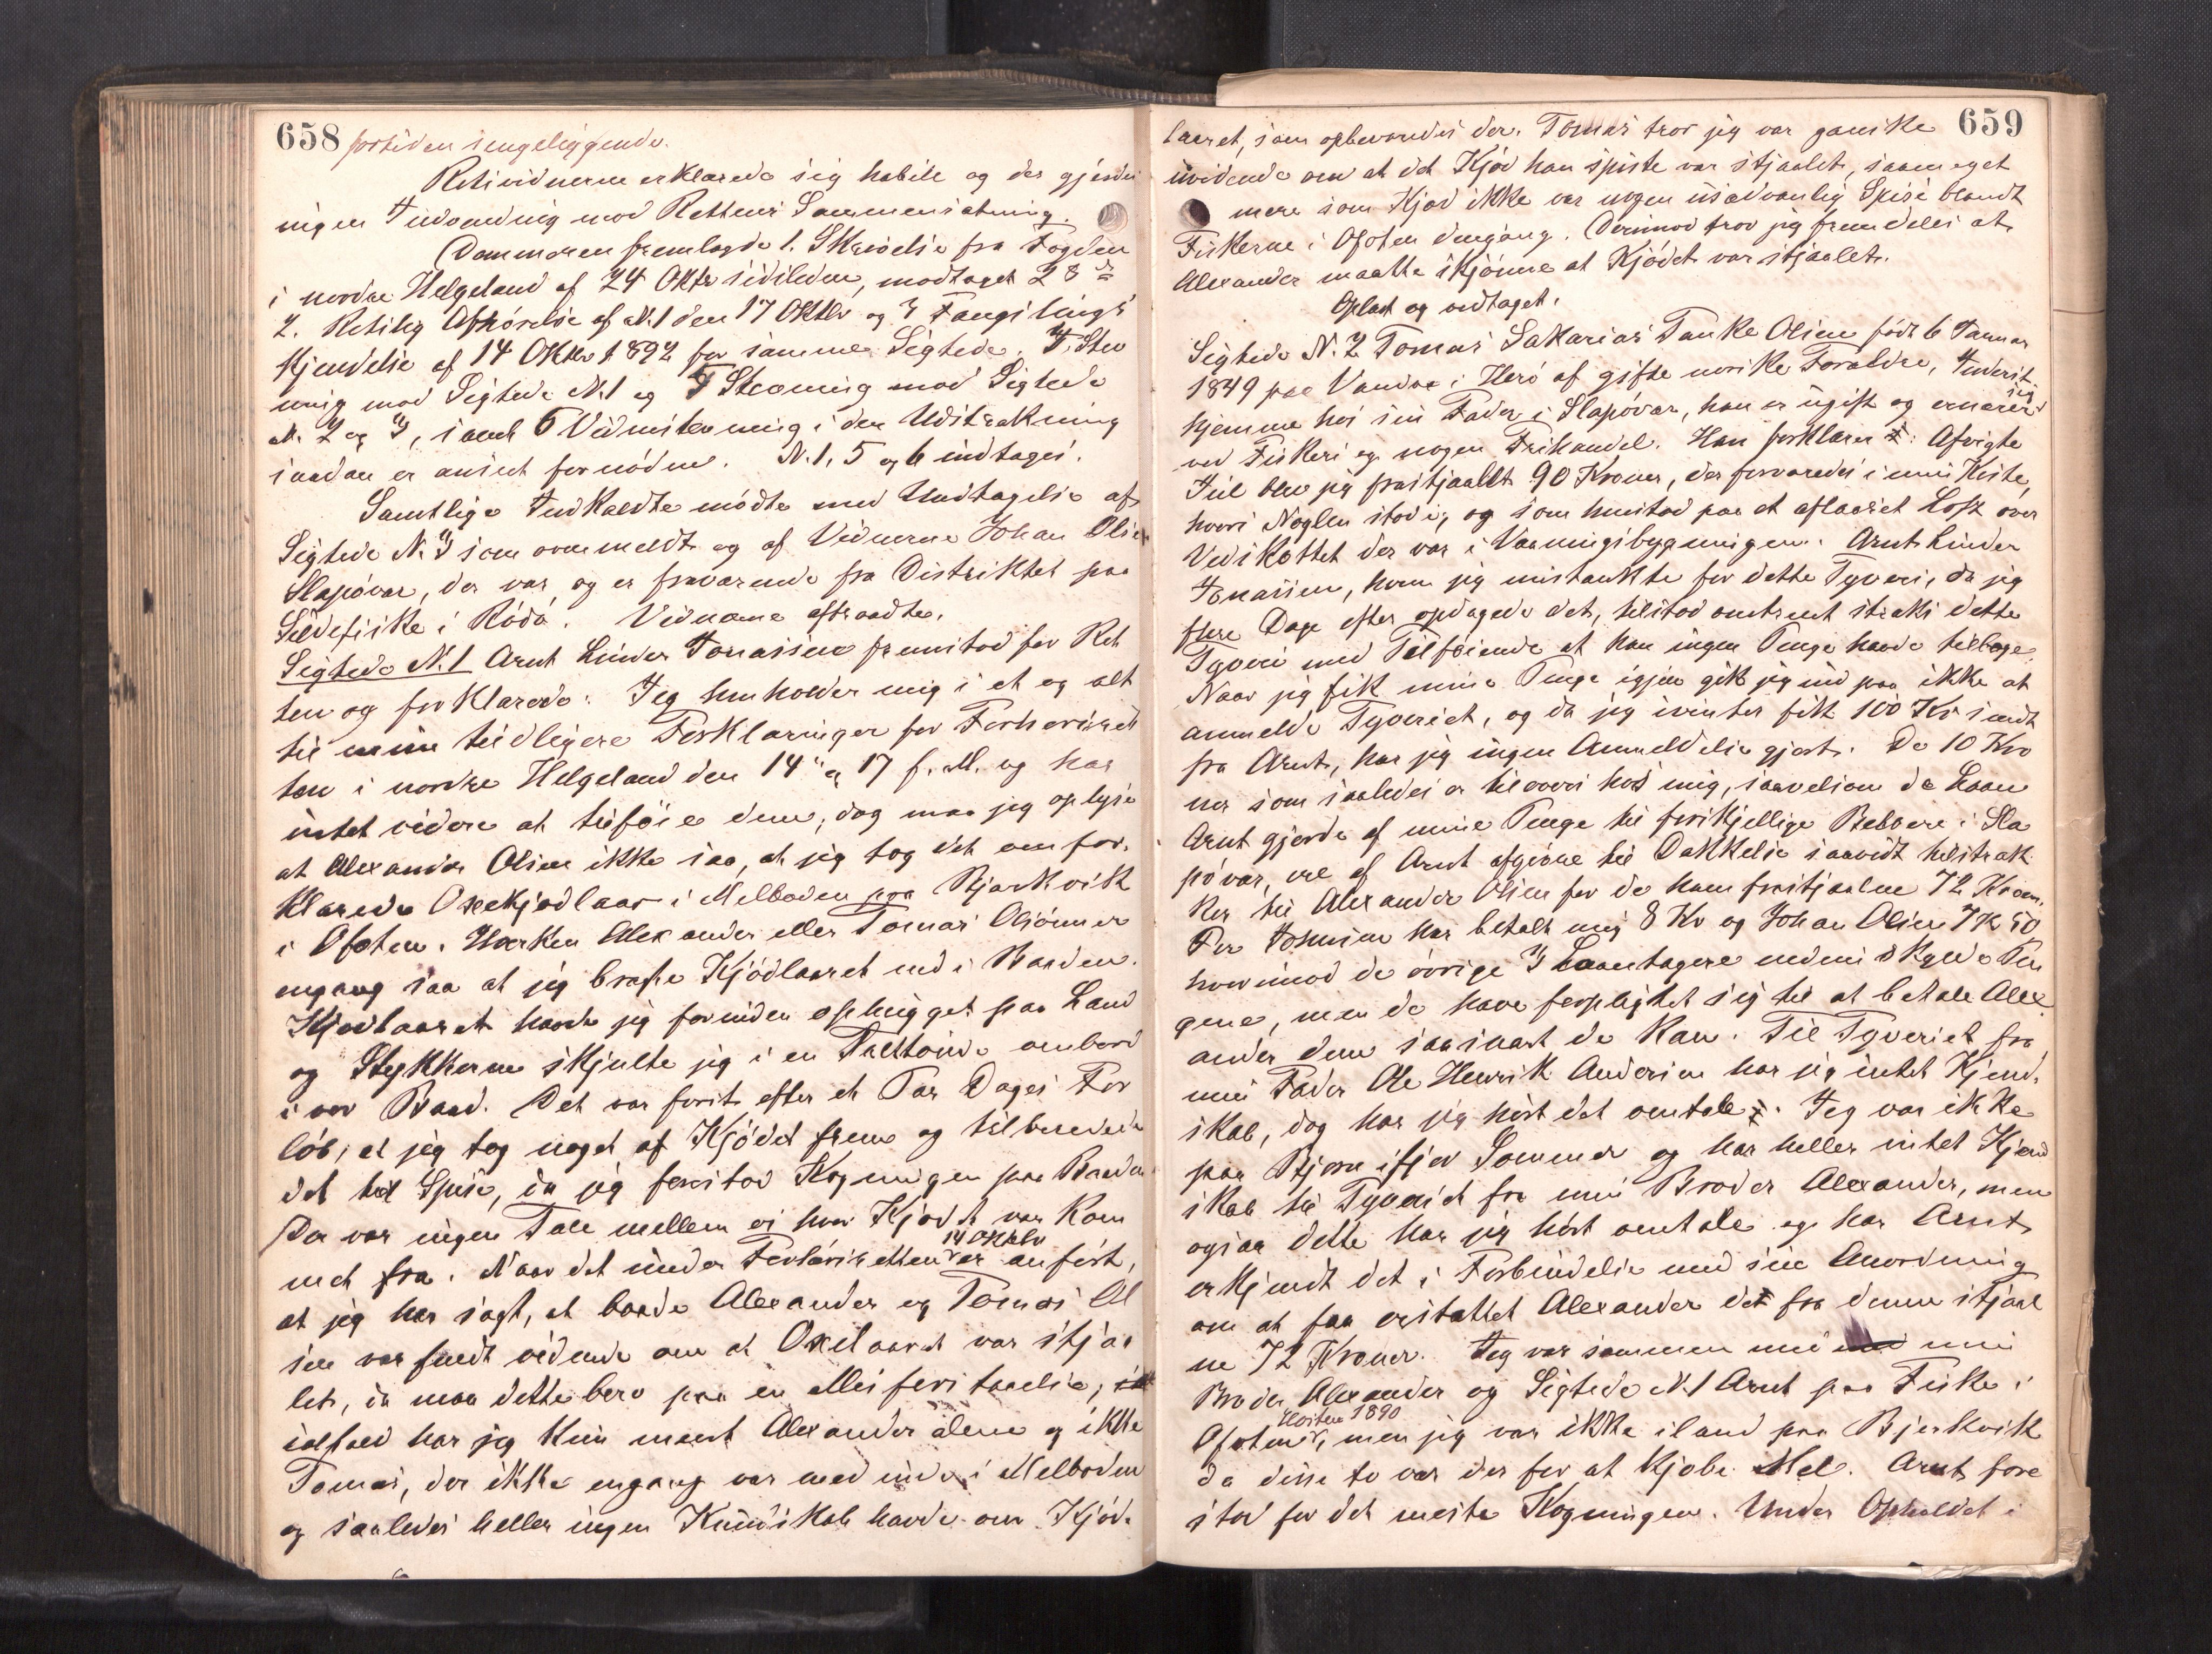 658 fortiden sengeliggende.
Retsvidnerne erklærede sig habile og der gjordes
ingen Indvending mod Rettens Sammensætning.
Dommeren fremlagde 1. Skrivelse fra Fogden
i nordre Helgeland af 24 Oktbr sidstleden, modtaget 28 ds
2. Retslig Afhørelse af N. 1 den 17 Oktbr og 3 Fængslings
Kjendelse af 14 Oktbr 1892 for samme Sigtede. 4 Stev
ning mod Sigtede N. 1 og 5 Stevning mod Sigtede
N. 2 og 3, samt 6 Vidnestevning i den Udstrækning
saadan er anseet fornöden. N. 1, 5 og 6 indtages.
Samtlige Indkaldte mödte med Undtagelse af
Sigtede N. 3 som ovenmeldt og af Vidnerne Johan Olsen
Slapövær, der var, og er fraværende fra Distriktet paa
Sildefiske i Rödö. Vidnerne aftraadte.
Sigtede N. 1 Arnt Linder Jonassen fremstod for Ret
ten og forklarede: Jeg henholder mig i et og alt
til mine tidligere Forklaringer for Forhörsret
ten i nordre Helgeland den 14 og 17 f. M. og har
intet videre at tilföie dem, dog maa jeg oplyse
at Alexander Olsen ikke saa, at jeg tog det omfor-
klarede Oxekjødlaar i Melboden paa Bjerkvik
i Ofoten. Hverken Alexander eller Tomas Olsönner
engang saa at jeg bragte Kjödlaaret ned i Baaden.
Kjødlaaret havde jeg forinden ophugget paa Land
og Stykkerne skjulte jeg i en Trættönde ombord
i vor Baad. Det var först efter et Par Dages For
löb, at jeg tog noget af Kjödet frem og tilberedede
det til Spise, da jeg forestod Kogningen paa Baaden
Der var ingen Tale mellem os hvor Kjødet var kom
met fra. Naar det under Forhörsretten 14 Oktbr er anfört,
at jeg har sagt, at baade Alexander og Tomas Ol
sen var fuldt vidende om at Oxelaaret var stjaa
let, da maa dette bero paa en Misforstaaelse;
ialfald har jeg kun ment Alexander alene og ikke
Tomas, der ikke engang var med inde i Melboden
og saaledes heller ingen Kundskab havde om Kjöd-
659
laaret, som opbevaredes der. Tomas tror jeg var ganske
uvidende om at det Kjød han spiste var stjaalet, saameget
mere som Kjød ikke var nogen usædvanlig Spise blandt
Fiskerne i Ofoten dengang. Derimod tror jeg fremdeles at
Alexander maatte skjönne at Kjödet var stjaalet.
Oplæst og vedtaget.
Sigtede N. 2 Tomas Sakarias Tanke Olsen född 6 Januar
1849 paa Vandve i Herö af gifte norske Forældre,
hjemme hos sin Fader i Slapövær, han er ugift og ernærer sig
ved Fiskeri og nogen Frihandel. Han forklarer: Afvigte
Juul blev jeg frastjaalet 90 Kroner, der forvaredes i min Kiste,
hvori Nøglen stod i, og som henstod paa et aflaaset Loft over
Vedskottet der var i Vaaningsbygningen. Arnt Linder
Jonassen, hvem jeg mistænkte for dette Tyveri, da jeg
flere Dage efter opdagede det, tilstod omtrent straks dette
Tyveri med Tilföiende at han ingen Penge havde tilbage.
Naar jeg fik mine Penge igjen gik jeg ind paa ikke at
anmelde Tyveriet, og da jeg ivinter fik 100 Kr sendt
fra Arnt, har jeg ingen Anmeldelse gjort. De 10 Kro
ner som saaledes er tilovers hos mig, saavelsom de Laan
Arnt gjorde af mine Penge til forskjellige Beboere i Sla
pövær, ere af Arnt afgivne til Dækkelse saavidt tilstræk
ker til Alexander Olsen for de ham frastjaalne 72 Kroner.
Per Johnsen har betalt mig 8 Kr og Johan Olsen 7 K 50
hvorimod de övrige 3 Laantagere endnu skylde Pen
gene, men de have forpligtet sig til at betale Alex
ander dem saasnart de kan. Til Tyveriet fra
min Fader Ole Henrik Andersen har jeg intet Kjend-
skab, dog har jeg hört det omtale. Jeg var ikke
paa Bjørn ifjor Sommer og har heller intet Kjend
skab til Tyveriet fra min Broder Alexander, men
ogsaa dette har jeg hört omtale og har Arnt
erkjendt det i Forbindelse med sin Anordning
om at faa erstattet Alexander det fra denne stjaal
ne 72 Kroner. Jeg var sammen med min
Broder Alexander og Sigtede N. 1 Arnt paa Fiske i
Ofoten Høsten 1890, men jeg var ikke iland paa Bjerkvik
da disse to var der for at kjøbe Mel. Arnt fore
stod for det meste Kogningen. Under Opholdet i